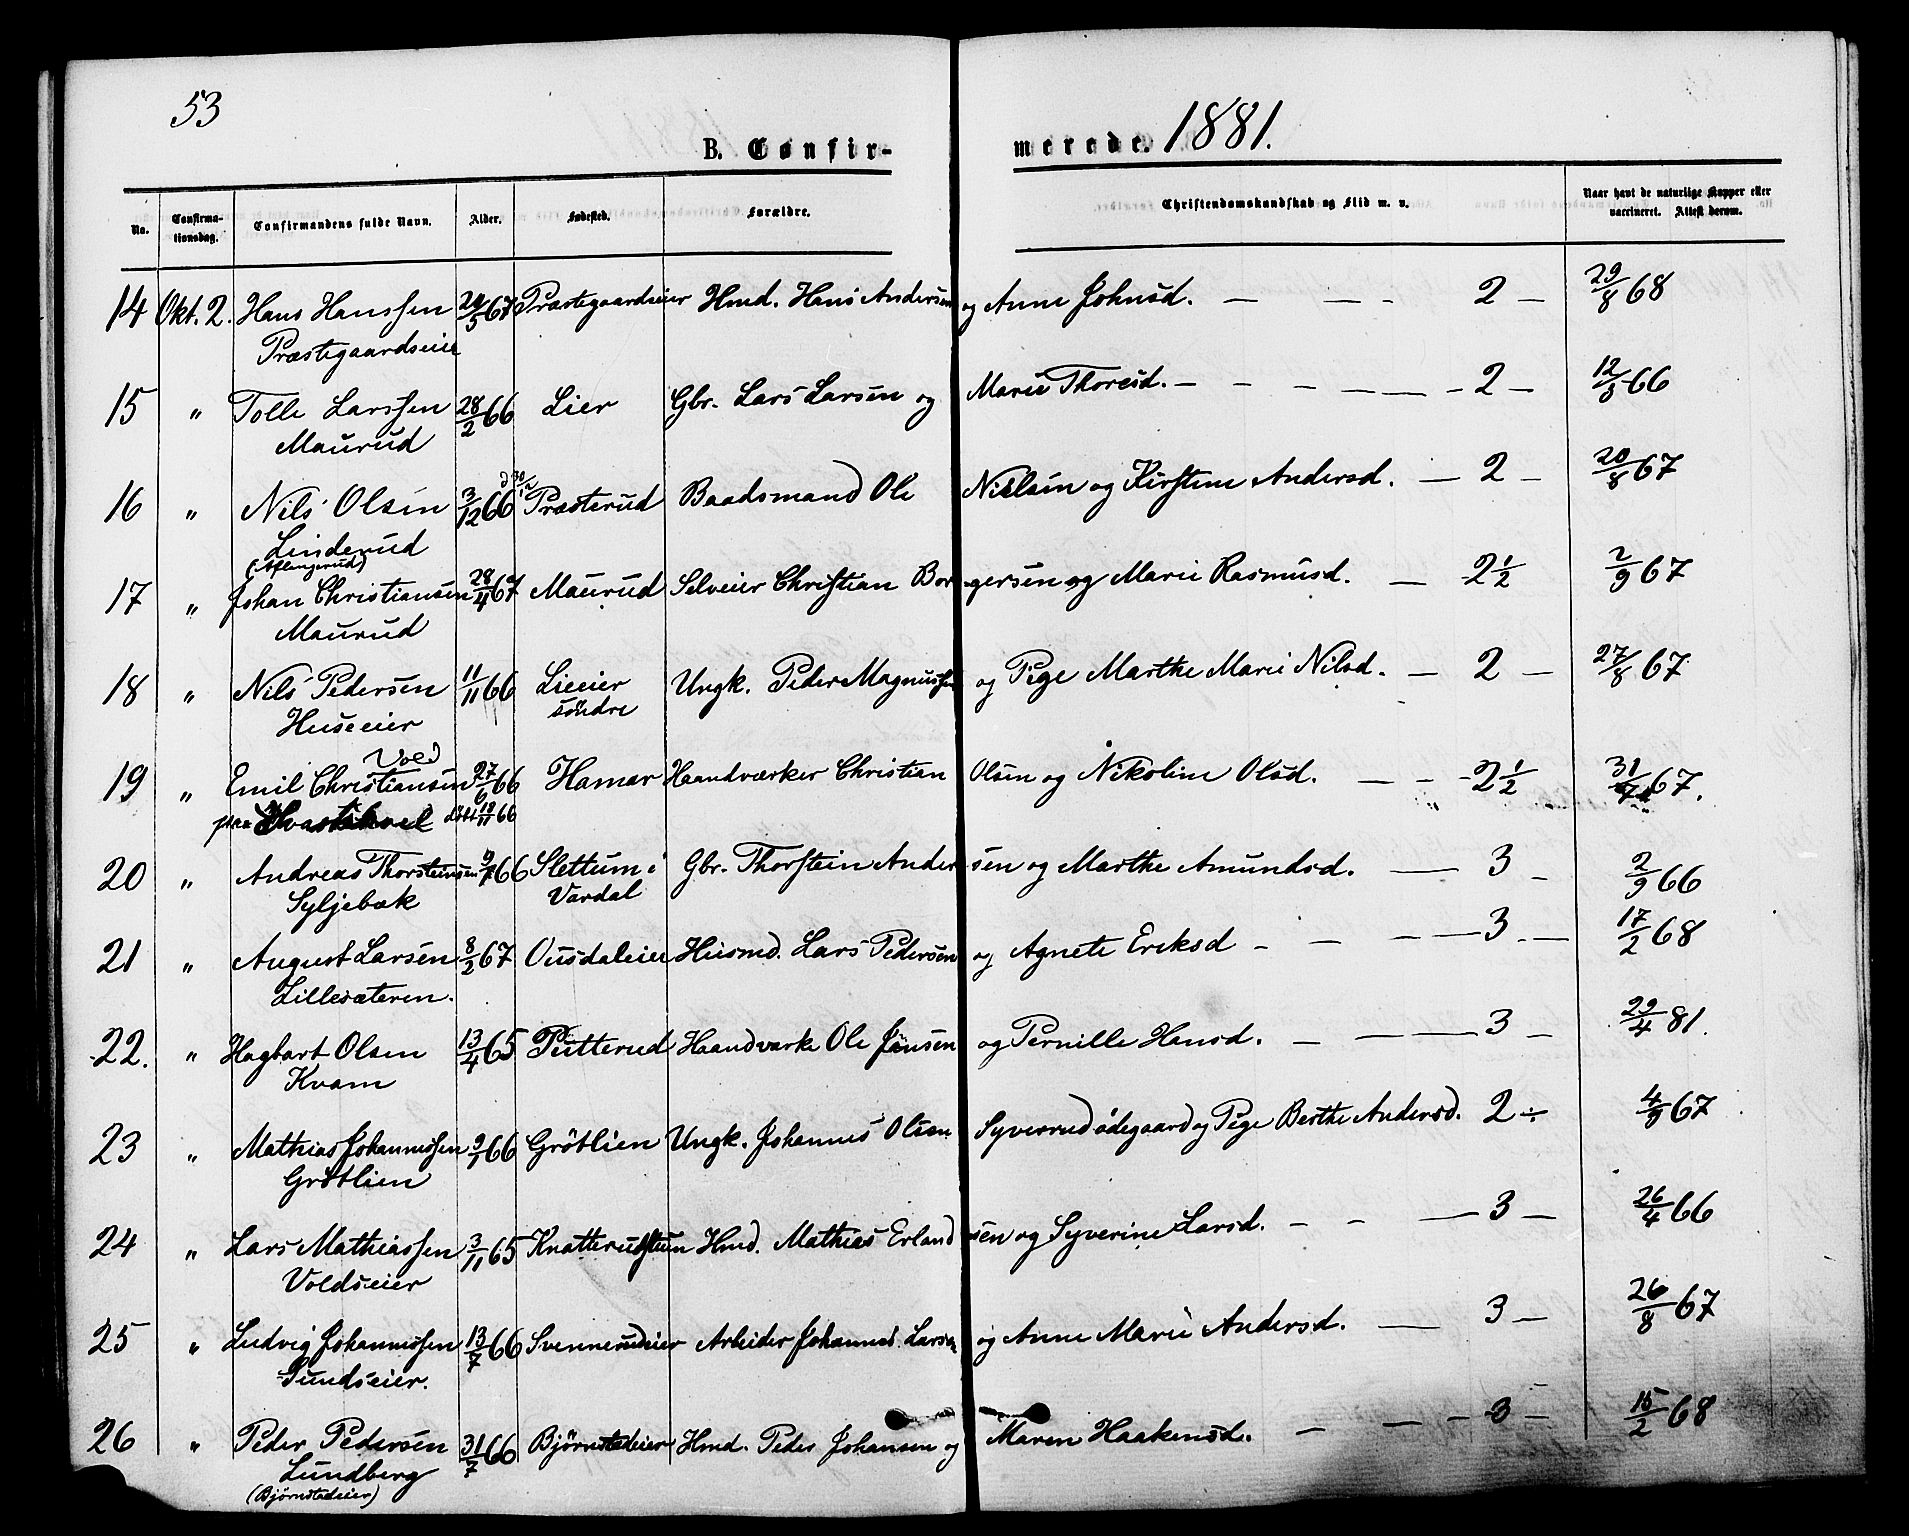 53
B. Confir-
merede. 1881.
No. Confirma-tionsdag. Confirmandens fulde Navn. Alder. Fødested. Forældre. Christendomskundskab og Flid m. v. Naar havt de naturlige Kopper eller vaccineret. Attest derom.
14 Okt. 2. Hans Hanssen 20/5 67 Præstegaardseier Hmd. Hans Andersen og Anne Johnsd. — — - 2 — 29/8 68
Præstegaardseier
15 " Tolle Larssen 28/2 66 Lier Gbr. Lars Larsen og Marie Thoresd. — - - — — - 2 — 12/8 66
Maurud
16 " Nils Olsen 3/12 66 d 30/12 Præsterud Baadsmand Ole Nielsen og Kirstine Andersd. — 2 - 20/8 67
Linderud
(Aflangerud)
17 " Johan Christiansen 28/4 67 Maurud Selveier Christian Borgersen og Marie Rasmusd. — 2 1/2 2/9 67
Maurud
18 " Nils Pedersen 11/11 66 Lieeier Ungk. Peder Magnussen og Pige Marthe Marie Nilsd. — 2 — 27/8 67
Huseeier søndre
Vold
19 " Emil Christiansen 27/6 66 Hamar Haandværker Christian Olsen og Nikoline Olsd. — - - 2 1/2 31/7 67.
paa døbt 18/11 66
20 " Andreas Thorstensen 66 Slettum i Gbr. Thorstein Andersen og Marthe Amundsd. — 3 - 2/9 66
Syljebæk Vardal
21 " August Larsen 8/2 67 Ousdaleier Husmd. Lars Pedersen og Agnete Eriksd - — - — 3 - — 17/2 68
Lillesæteren.
22. " Hagbart Olsen 13/4 65 Putterud Haandværk Ole Jensen og Pernille Hansd. — - — — 3 — 29/4 81.
Kvam
23 " Mathias Johannessen 66 Grøtlien Ungk. Johannes Olsen Syverrudødegaard og Pige Berthe Andersd. 2 ÷ 4/9 67
Grøtlien
24 " Lars Mathiassen 3/11 65 Knatterudstuen Hmd. Mathias Erlandsen og Syverine Larsd. - - — 3 — 26/4 66
Voldseier
25 " Ludvig Johannessen 13/7 66 Svennerudeier Arbeider Johannes Larsen og Anne Marie Andersd. — 3 — 26/8 67
Sundseier.
26 " Peder Pedersen 31/7 66 Bjørnstadeier Hmd. Peder Johansen og Maren Haakensd. — — - 3 — 15/2 68
Lundberg
(Bjørnstadeier)